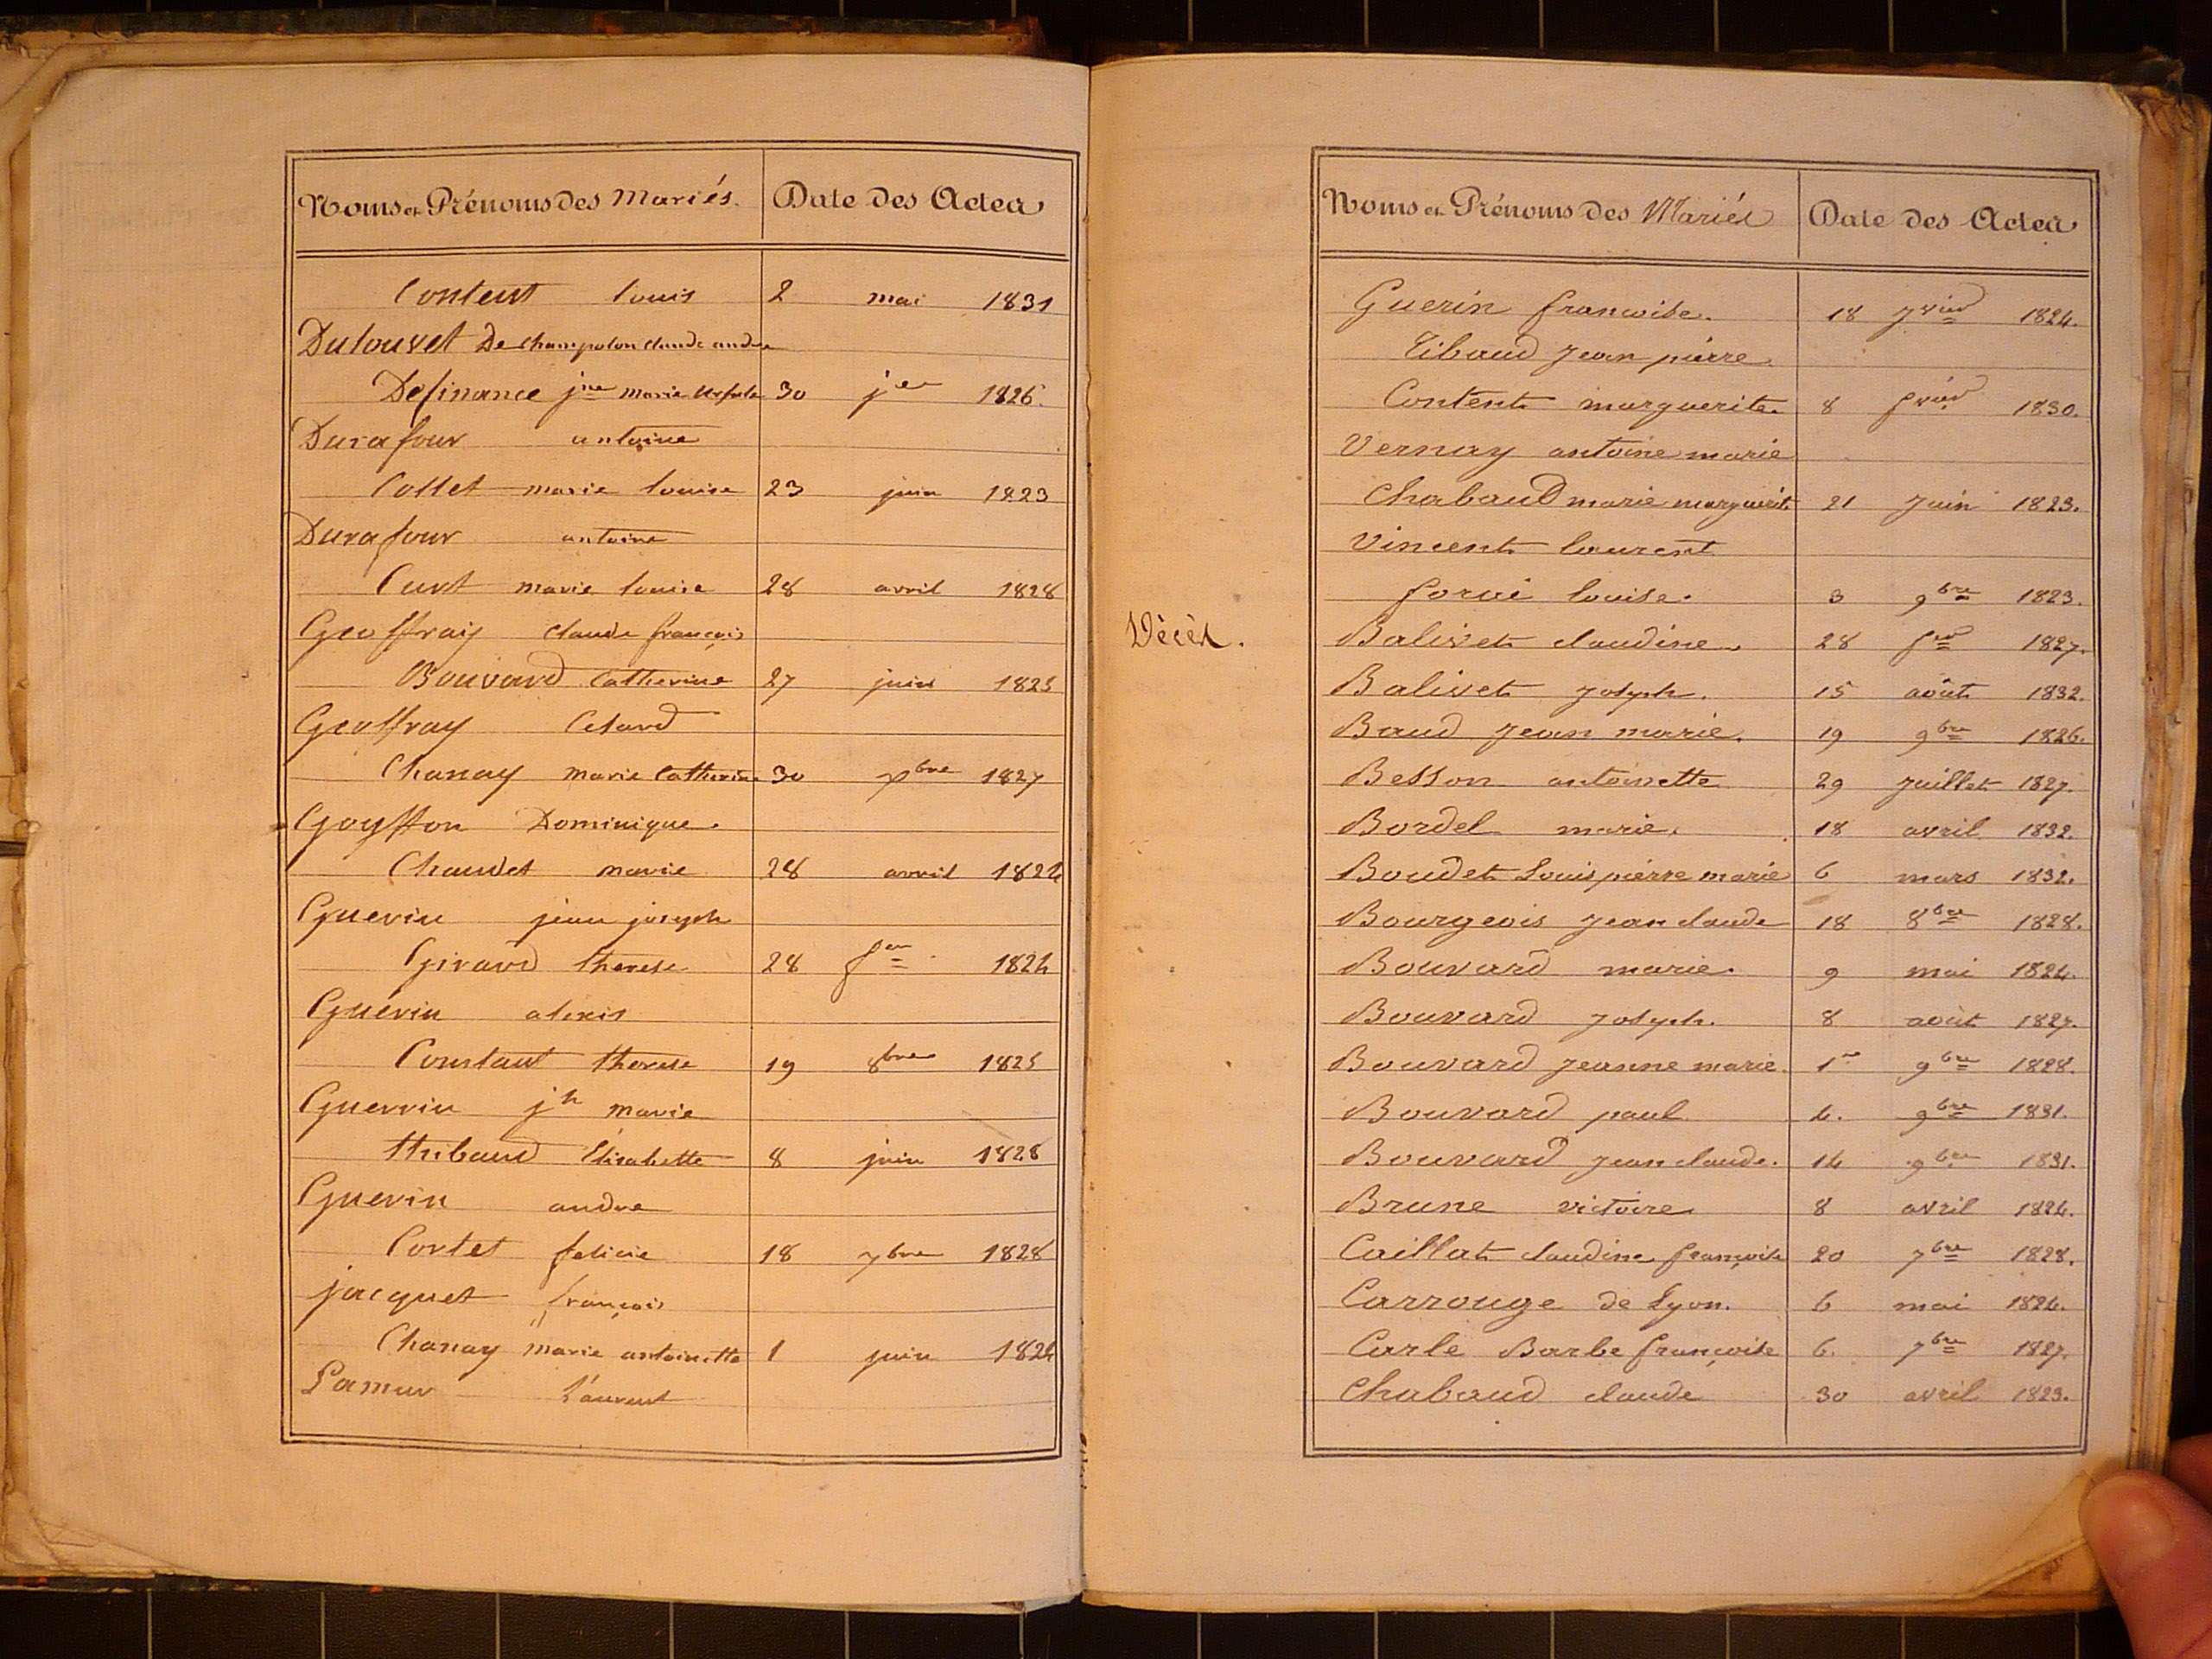 Noms et Prénoms des Mariés. Date des Actes
Content Louis 2 mai 1831
Dulouvet De Champolon Claude andre
Definance jne marie Ursule 30 jer 1826
Durafour antoine
Collet marie louise 23 juin 1823
Durafour antoine
Curt marie louise 28 avril 1828
Geoffray claude françois
Bouvard Catherine 27 juin 1825
Geoffray Cesard
Chanay marie Catherine 30 xbre 1827
Goyffon Dominique
Chaudet marie 28 avril 1824
Guerin jean joseph
Girard therese 28 fer 1824
Guérin alexis
Constant therese 19 8bre 1825
Guerrin jh marie
thibaud Elisabette 8 juin 1828
Guerin andre
Cortet felicie 18 7bre 1828
jacquet françois
Chanay marie antoinette 1 juin 1824
Lamur Laurent
Noms et Prénoms des Mariés Date des Actes
Guerin francoise. 18 jvier 1824.
Tibaud Jean pierre
Content marguerite. 8 fvrier 1830.
Vernay antoine marie
Chabaud marie marguerite 21 Juin 1823.
Vincent laurent
forai louise. 3 9bre 1823.
Décès.
Balivet claudine. 28 fer 1827.
Balivet Joseph. 15 août 1832.
Baud Jean marie. 19 9bre 1826.
Besson antoinette 29 Juillet 1827.
Bordel marie. 18 avril 1832.
Boudet Louis pierre marie 6 mars 1832.
Bourgeois Jean claude 18 8bre 1828.
Bouvard marie. 9 mai 1824.
Bouvard Joseph. 8 août 1827.
Bouvard Jeanne marie. 1er 9bre 1828.
Bouvard paul 4. 9bre 1831.
Bouvard Jean claude. 14 9bre 1831.
Brune victoire 8 avril 1824.
Caillat claudine françoise 20 7bre 1828.
Carrouge de Lyon. 6 mai 1824.
Carle Barbe françoise 6. 7bre 1827.
Chabaud claude 30 avril 1823.